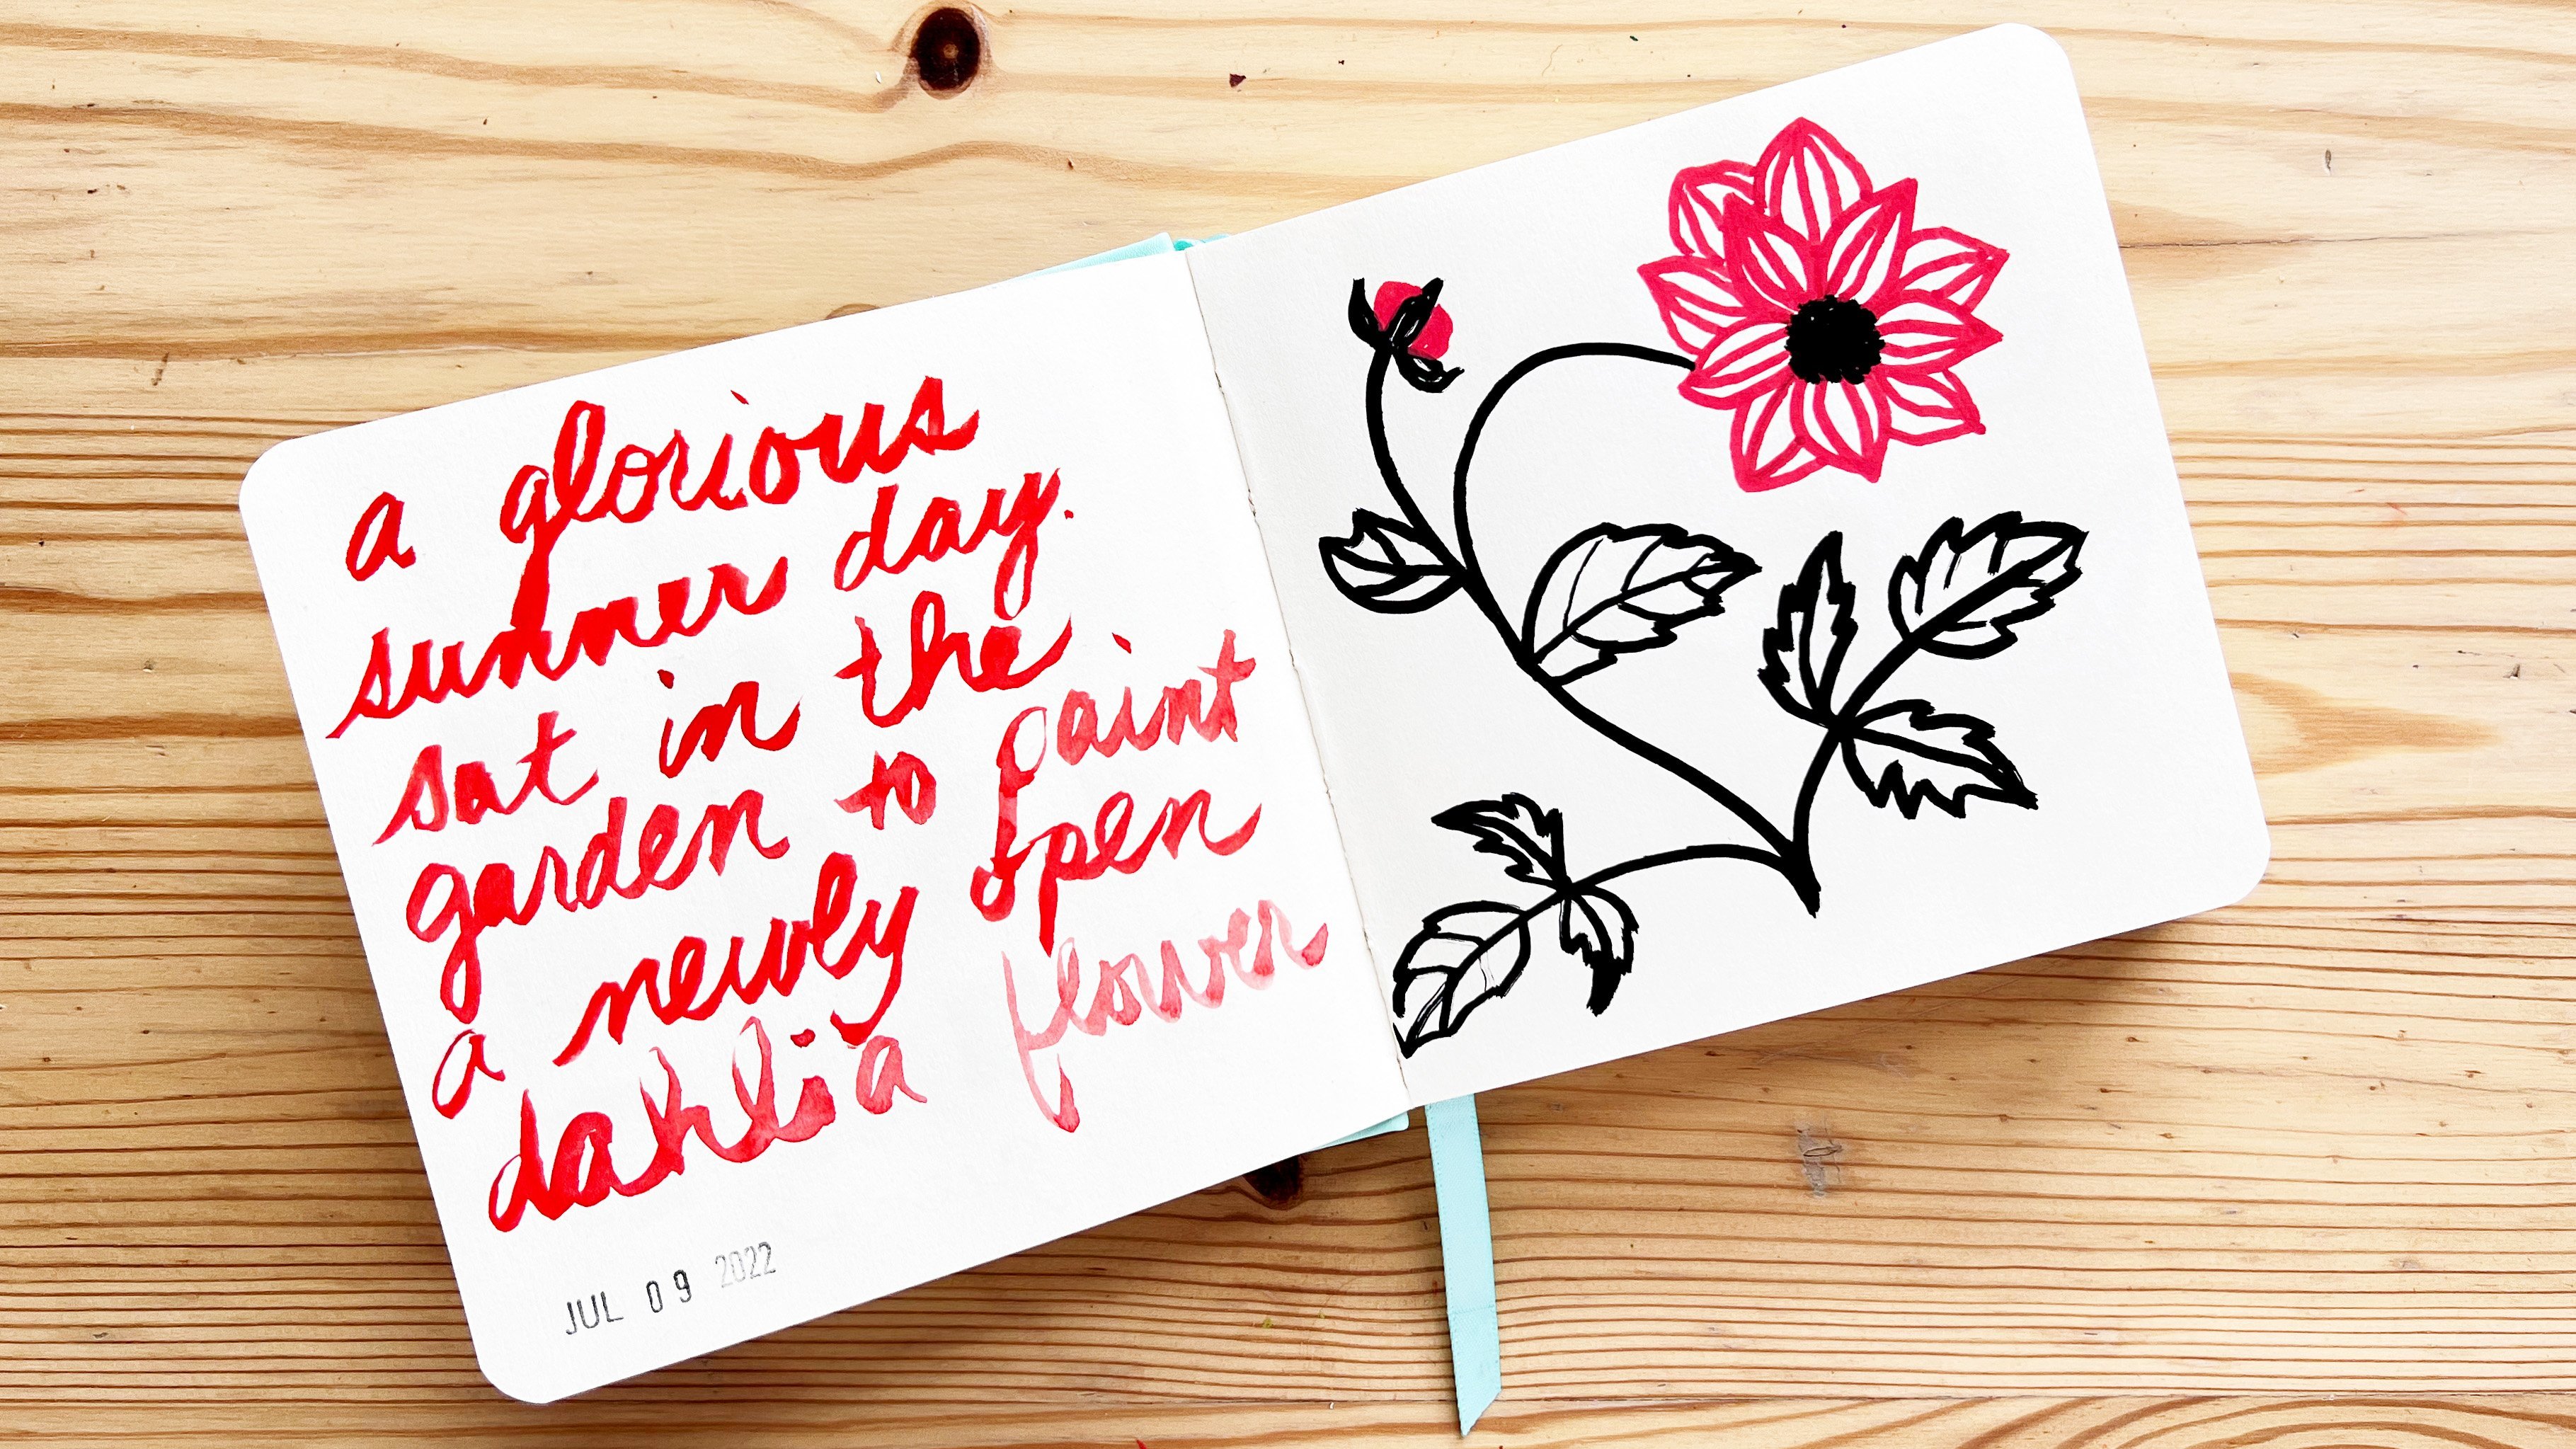 a glorious
summer day.
sat in the
garden to paint
a newly open
dahlia flower
JUL 09 2022